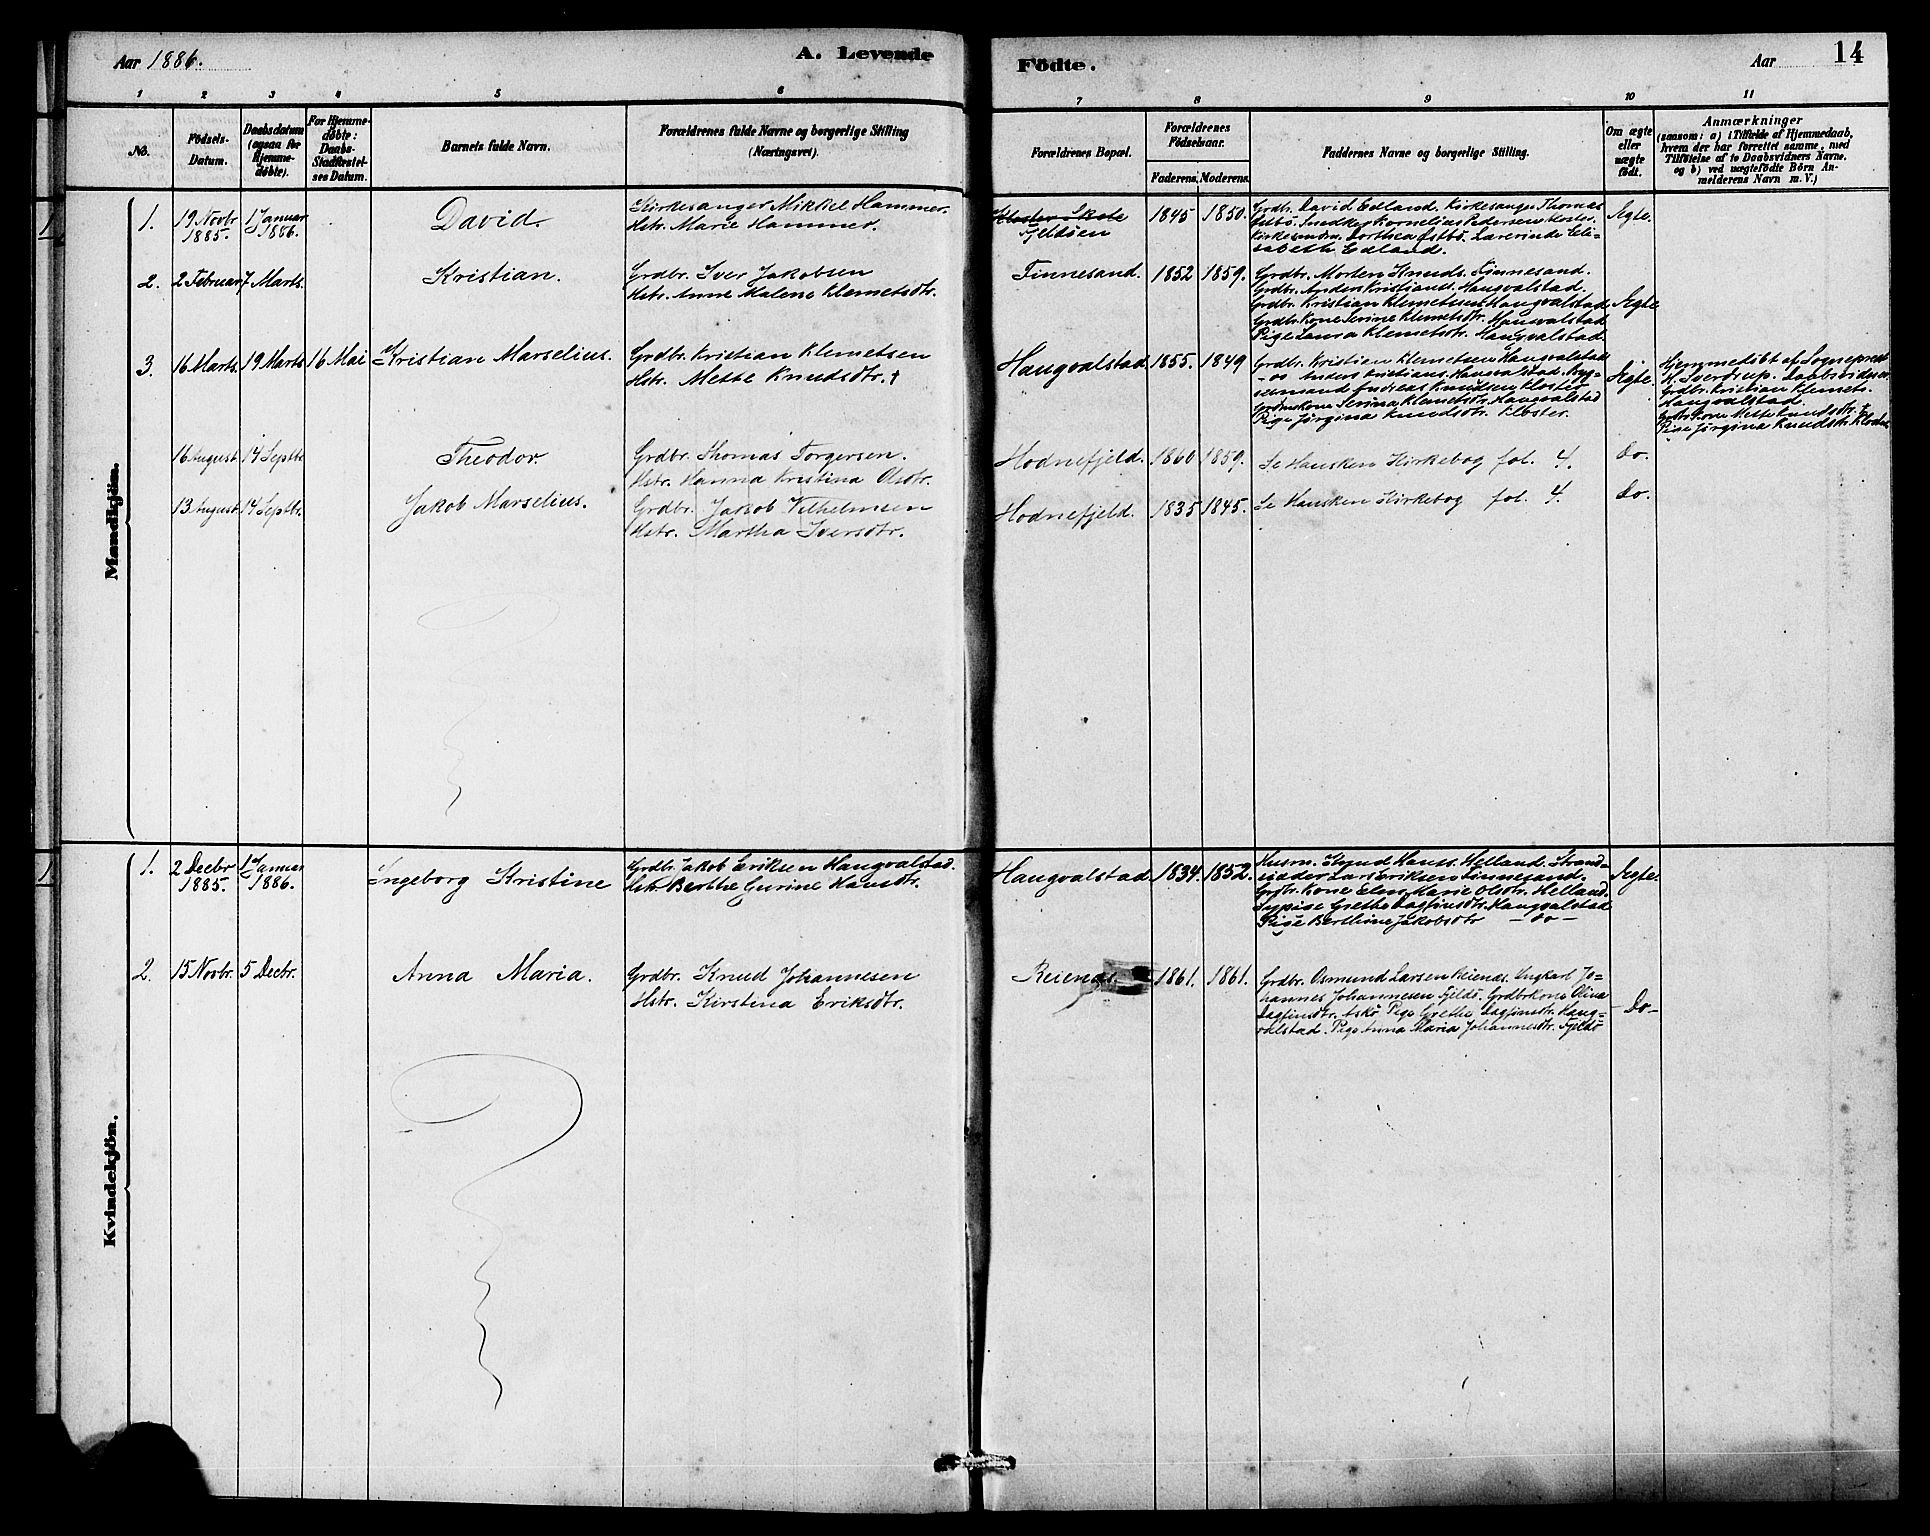 Aar 1886.
A. Levende
Födte.
Aar
14
1
2
3
4
5
6
7
8
9
10
11
No.
Födsels-
Datum.
Daabsdatum
(ogsaa for
Hjemme-
döbte).
For Hjemme-
döbte:
Daabs-
Stadfæstel-
ses Datum.
Barnets fulde Navn.
Forældrenes fulde Navne og borgerlige Stilling
(Næringsvei).
Forældrenes Bopæl.
Forældrenes
Födselsaar.
Faderens.
Moderens.
Faddernes Navne og borgerlige Stilling.
Om ægte
eller
uægte
födt.
Anmærkninger
(saasom: a) i Tilfælde af Hjemmedaab,
hvem der har forrettet samme, med
Tilföielse af to Daabsvidners Navne.
og b) ved uægtefödte Börn An-
melderens Navn m. V.)
Mandkjön.
1.
19 Novbr
1885.
1 Januar
1886.
David.
Kirkesanger Mikkel Hammer.
Hstr. Marie Hammer.
Kloster Skole
Fjeldöen
1845
1850.
Grdbr. David Edland. Kirkesang. Thomas
Östbö. Snedker Kornelius Pedersen Kloster.
Dorthea Östbö. Lærerinde Eli-
sabeth Edland.
Ægte.
2.
2 Februar
7 Marts.
Kristian.
Grdbr. Iver Jakobsen
Hstr. Anne Malene Klemetsdtr.
Finnesand.
1852
1859.
Grdbr. Morten Knuds. Finnesand.
Grdbr. Anders Kristians. Haugvalstad.
Grdbr. Kristian Klemetsen Haugvalstad
Grdbr. Kone Serine Klemetsdtr. Haugvalstad
Pige Laura Klemetsdtr. Haugvalstad.
Ægte
3.
16 Marts.
19 Marts.
16 Mai
Kristian Marselius.
Grdbr. Kristian Klemetsen
Hstr. Mette Knudsdtr. †
Haugvalstad
1855.
1849
Grdbr. Kristian Klemetsen Haugvalstad
- do Anders Kristians. Haugvalstad. Byg-
selmand Andreas Knudsen Kloster
Grdmskone Serina Klemetsdtr. Haugvalstad
Pige Jörgina Knudsdtr. Kloster.
Ægte.
Hjemmedöbt af Sogneprest
H. Sverdrup. Daabsvidner
Grdbr. Kristian Klemets.
Haugvalstad.
Grdbr. Kone Mette Knudsdtr. &
Pige Jörgina Knudsdtr. Kloster
16 August.
14 Septbr.
Theodor.
Grdbr. Thomas Torgersen.
Hstr. Hanna Kristina Olsdtr.
Hodnefjeld.
1860
1859.
Se Hausken Kirkebog fol. 4.
Do.
13 August.
14 Septbr.
Jakob Marselius.
Grdbr. Jakob Vilhelmsen
Hstr. Martha Iversdtr.
Hodnefjeld.
1835
1845.
Se Hausken Kirkebog fol. 4.
Do.
Kvindekjön.
1.
2 Decbr
1885.
1 Januar
1886.
Ingeborg Kristine
Grdbr. Jakob Eriksen Haugvalstad.
Hstr. Berthe Gurine Hansdtr.
Haugvalstad
1834.
1852.
Husm. Knud Hanss. Helland. Strand-
sidder Lars Eriksen Finnesand.
Grdbr. Kone Elen Marie Olsdtr. Helland.
Sypige Grethe Dagfinsdtr. Haugvalstad
Pige Berthine Jakobsdtr - do -
Ægte.
2.
15 Novbr.
5 Decbr.
Anna Maria.
Grdbr. Knud Johannesen
Hstr. Kirstina Eriksdtr.
Reienæs
1861.
1861.
Grdbr. Osmund Larsen Reienæs. Ungkarl Jo-
hannes Johannesen Fjeldö. Grdbrkone Olina
Dagfinsdtr. Askö Pige Grethe Dagfinsdtr. Haug-
valstad. Pige Anna Maria Johannesdtr. Fjeldö
- Do -